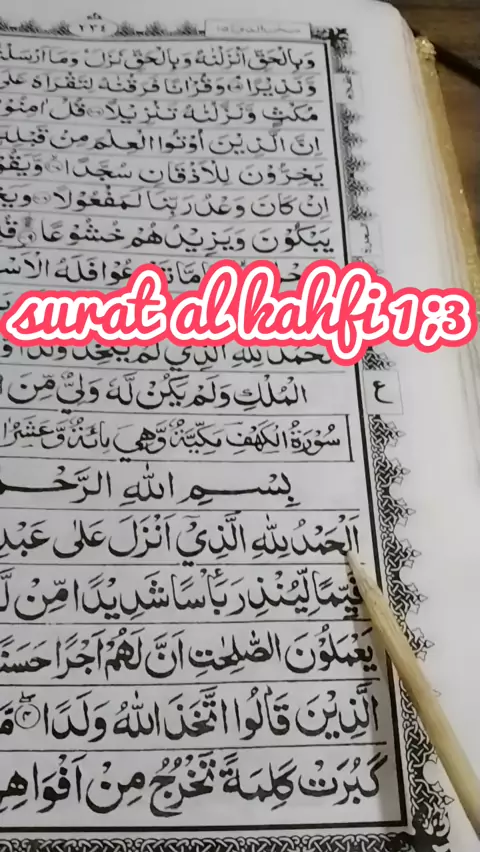 ٢٣٤
وَبِالْحَقِّ اَنْزَلْنٰهُ وَبِالْحَقِّ نَزَلَ وَمَآ اَرْسَلْنٰ
وَّنَذِيْرًا وَقُرْاٰنًا فَرَقْنٰهُ لِتَقْرَاَهٗ عَلَى
مُكْثٍ وَّنَزَّلْنٰهُ تَنْزِيْلًا قُلْ اٰمِنُوْا
اِنَّ الَّذِيْنَ اُوْتُوا الْعِلْمَ مِنْ قَبْلِهٖٓ
يَخِرُّوْنَ لِلْاَذْقَانِ سُجَّدًا وَيَقُوْ
اِنْ كَانَ وَعْدُ رَبِّنَا لَمَفْعُوْلًا
يَبْكُوْنَ وَيَزِيْدُهُمْ خُشُوْعًا
surat al kahfi 1;3
الْحَمْدُ لِلّٰهِ الَّذِيْ لَمْ يَتَّخِذْ وَلَدًا
الْمُلْكِ وَلَمْ يَكُنْ لَّهٗ وَلِيٌّ مِّنَ
ع
سُوْرَةُ الْكَهْفِ مَكِّيَّةٌ وَّهِيَ مِائَةٌ وَّعَشَرُ
بِسْمِ اللّٰهِ الرَّحْمٰ
اَلْحَمْدُ لِلّٰهِ الَّذِيْٓ اَنْزَلَ عَلٰى عَبْدِ
قَيِّمًا لِّيُنْذِرَ بَاْسًا شَدِيْدًا مِّنْ لَّ
يَعْمَلُوْنَ الصّٰلِحٰتِ اَنَّ لَهُمْ اَجْرًا حَسَنً
الَّذِيْنَ قَالُوا اتَّخَذَ اللّٰهُ وَلَدًا ۝٤ مَ
كَبُرَتْ كَلِمَةً تَخْرُجُ مِنْ اَفْوَاهِ